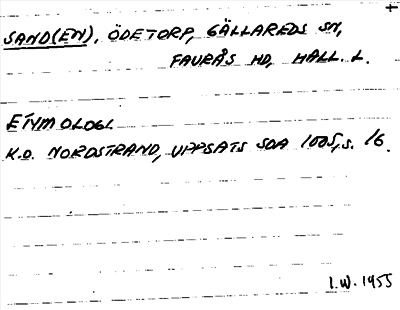 +
SAND(EN), ÖDETORP, GÄLLAREDS SN,
FAURÅS HD, HALL. L.
ETYMOLOGI.
K.O. NORDSTRAND, UPPSATS SOA 1005, S. 16.
I.W. 1955